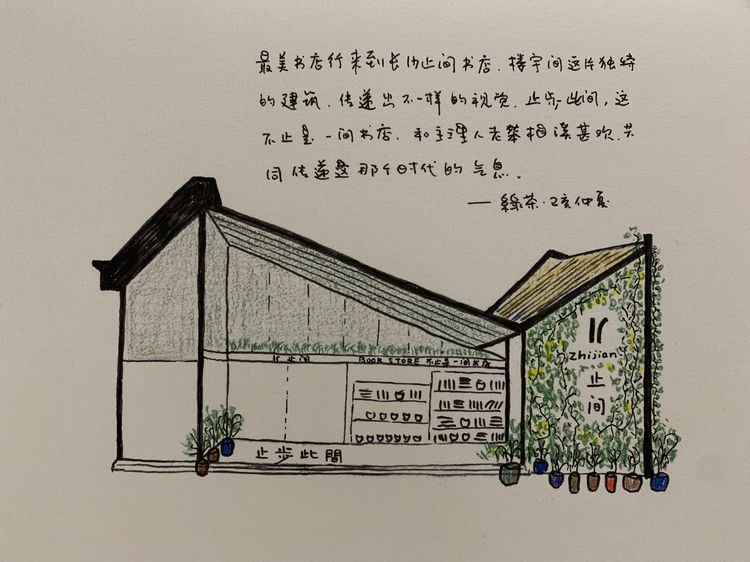 最美书店行来到长沙止间书店. 楼宇间这片独特
的建筑. 传递出不一样的视觉. 止步此间, 这
不止是一间书店. 和主理人老蔡相谈甚欢. 共
同传递是那个时代的气息.
— 綠茶·己亥仲夏
zhijian
止
间
止间 BOOK STORE 不止是一间书店
止步此間